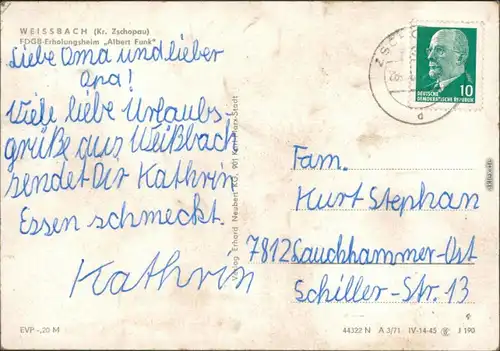 WEISSBACH (Kr. Zschopau)
FDGB-Erholungsheim „Albert Funk"
Liebe Oma und lieber
Opa!
Viele liebe Urlaubs-
grüße aus Weißbach
sendet Dir Kathrin
Essen schmeckt.
Kathrin
EVP -,20 M
Verlag Erhard Neubert KG, 901 Karl-Marx-Stadt
10
DEUTSCHE
DEMOKRATISCHE REPUBLIK
d
Fam.
Kurt Stephan
7812 Lauchhammer-Ost
Schiller-Str. 13
44322 N A 3/71 IV-14-45 J 190